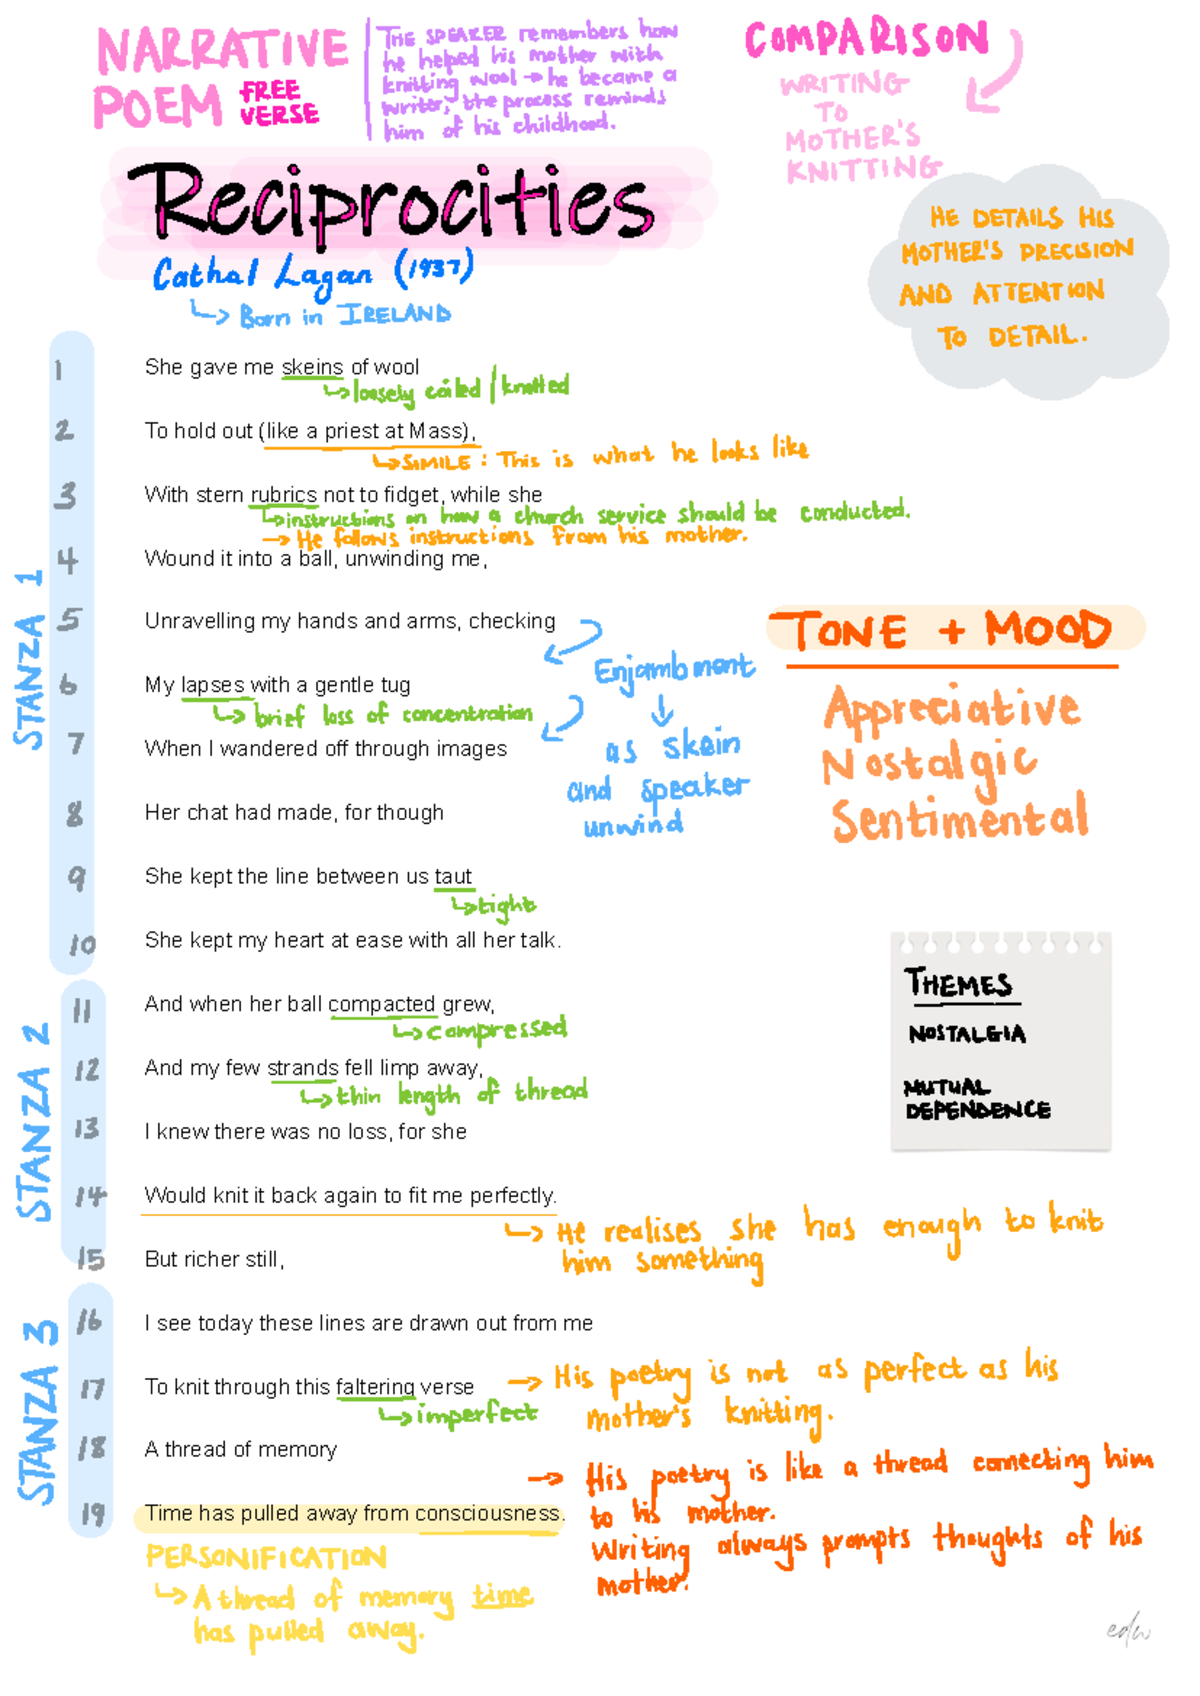 NARRATIVE
POEM FREE
VERSE
THE SPEAKER remembers how
he helped his mother with
knitting wool → he became a
writer, the process reminds
him of his childhood.
COMPARISON
WRITING
TO
MOTHER'S
KNITTING
Reciprocities
Cathal Lagan (1937)
↳ Born in IRELAND
HE DETAILS HIS
MOTHER'S PRECISION
AND ATTENTION
TO DETAIL.
STANZA 1
1 She gave me skeins of wool
↳ loosely coiled / knotted
2 To hold out (like a priest at Mass),
↳ SIMILE : This is what he looks like
3 With stern rubrics not to fidget, while she
↳ instructions on how a church service should be conducted.
→ He follows instructions from his mother.
4 Wound it into a ball, unwinding me,
5 Unravelling my hands and arms, checking
6 My lapses with a gentle tug
↳ brief loss of concentration
7 When I wandered off through images
8 Her chat had made, for though
9 She kept the line between us taut
↳ tight
10 She kept my heart at ease with all her talk.
Enjambment
↓
as skein
and speaker
unwind
TONE + MOOD
Appreciative
Nostalgic
Sentimental
THEMES
NOSTALGIA
MUTUAL
DEPENDENCE
STANZA 2
11 And when her ball compacted grew,
↳ compressed
12 And my few strands fell limp away,
↳ thin length of thread
13 I knew there was no loss, for she
14 Would knit it back again to fit me perfectly.
↳ He realises she has enough to knit
him something
15 But richer still,
STANZA 3
16 I see today these lines are drawn out from me
17 To knit through this faltering verse
↳ imperfect
→ His poetry is not as perfect as his
mother's knitting.
18 A thread of memory
19 Time has pulled away from consciousness.
→ His poetry is like a thread connecting him
to his mother.
Writing always prompts thoughts of his
mother.
PERSONIFICATION
↳ A thread of memory time
has pulled away.
edw